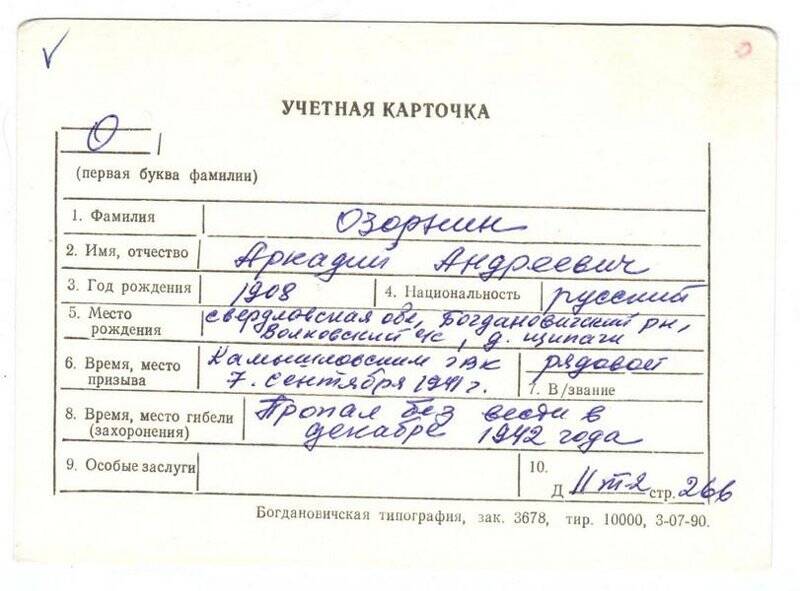 УЧЕТНАЯ КАРТОЧКА
О
(первая буква фамилии)
1. Фамилия Озорнин
2. Имя, отчество Аркадий Андреевич
3. Год рождения 1908 4. Национальность русский
5. Место рождения свердловская обл, Богдановичский рн,
Волковский с/с, д. щипачи
6. Время, место призыва Камышловским гвк
7. сентября 1941 г.
рядовой
7. В/звание
8. Время, место гибели (захоронения) Пропал без вести в
декабре 1942 года
9. Особые заслуги
10.
Д 11 т2 стр. 266
Богдановичская типография, зак. 3678, тир. 10000, 3-07-90.